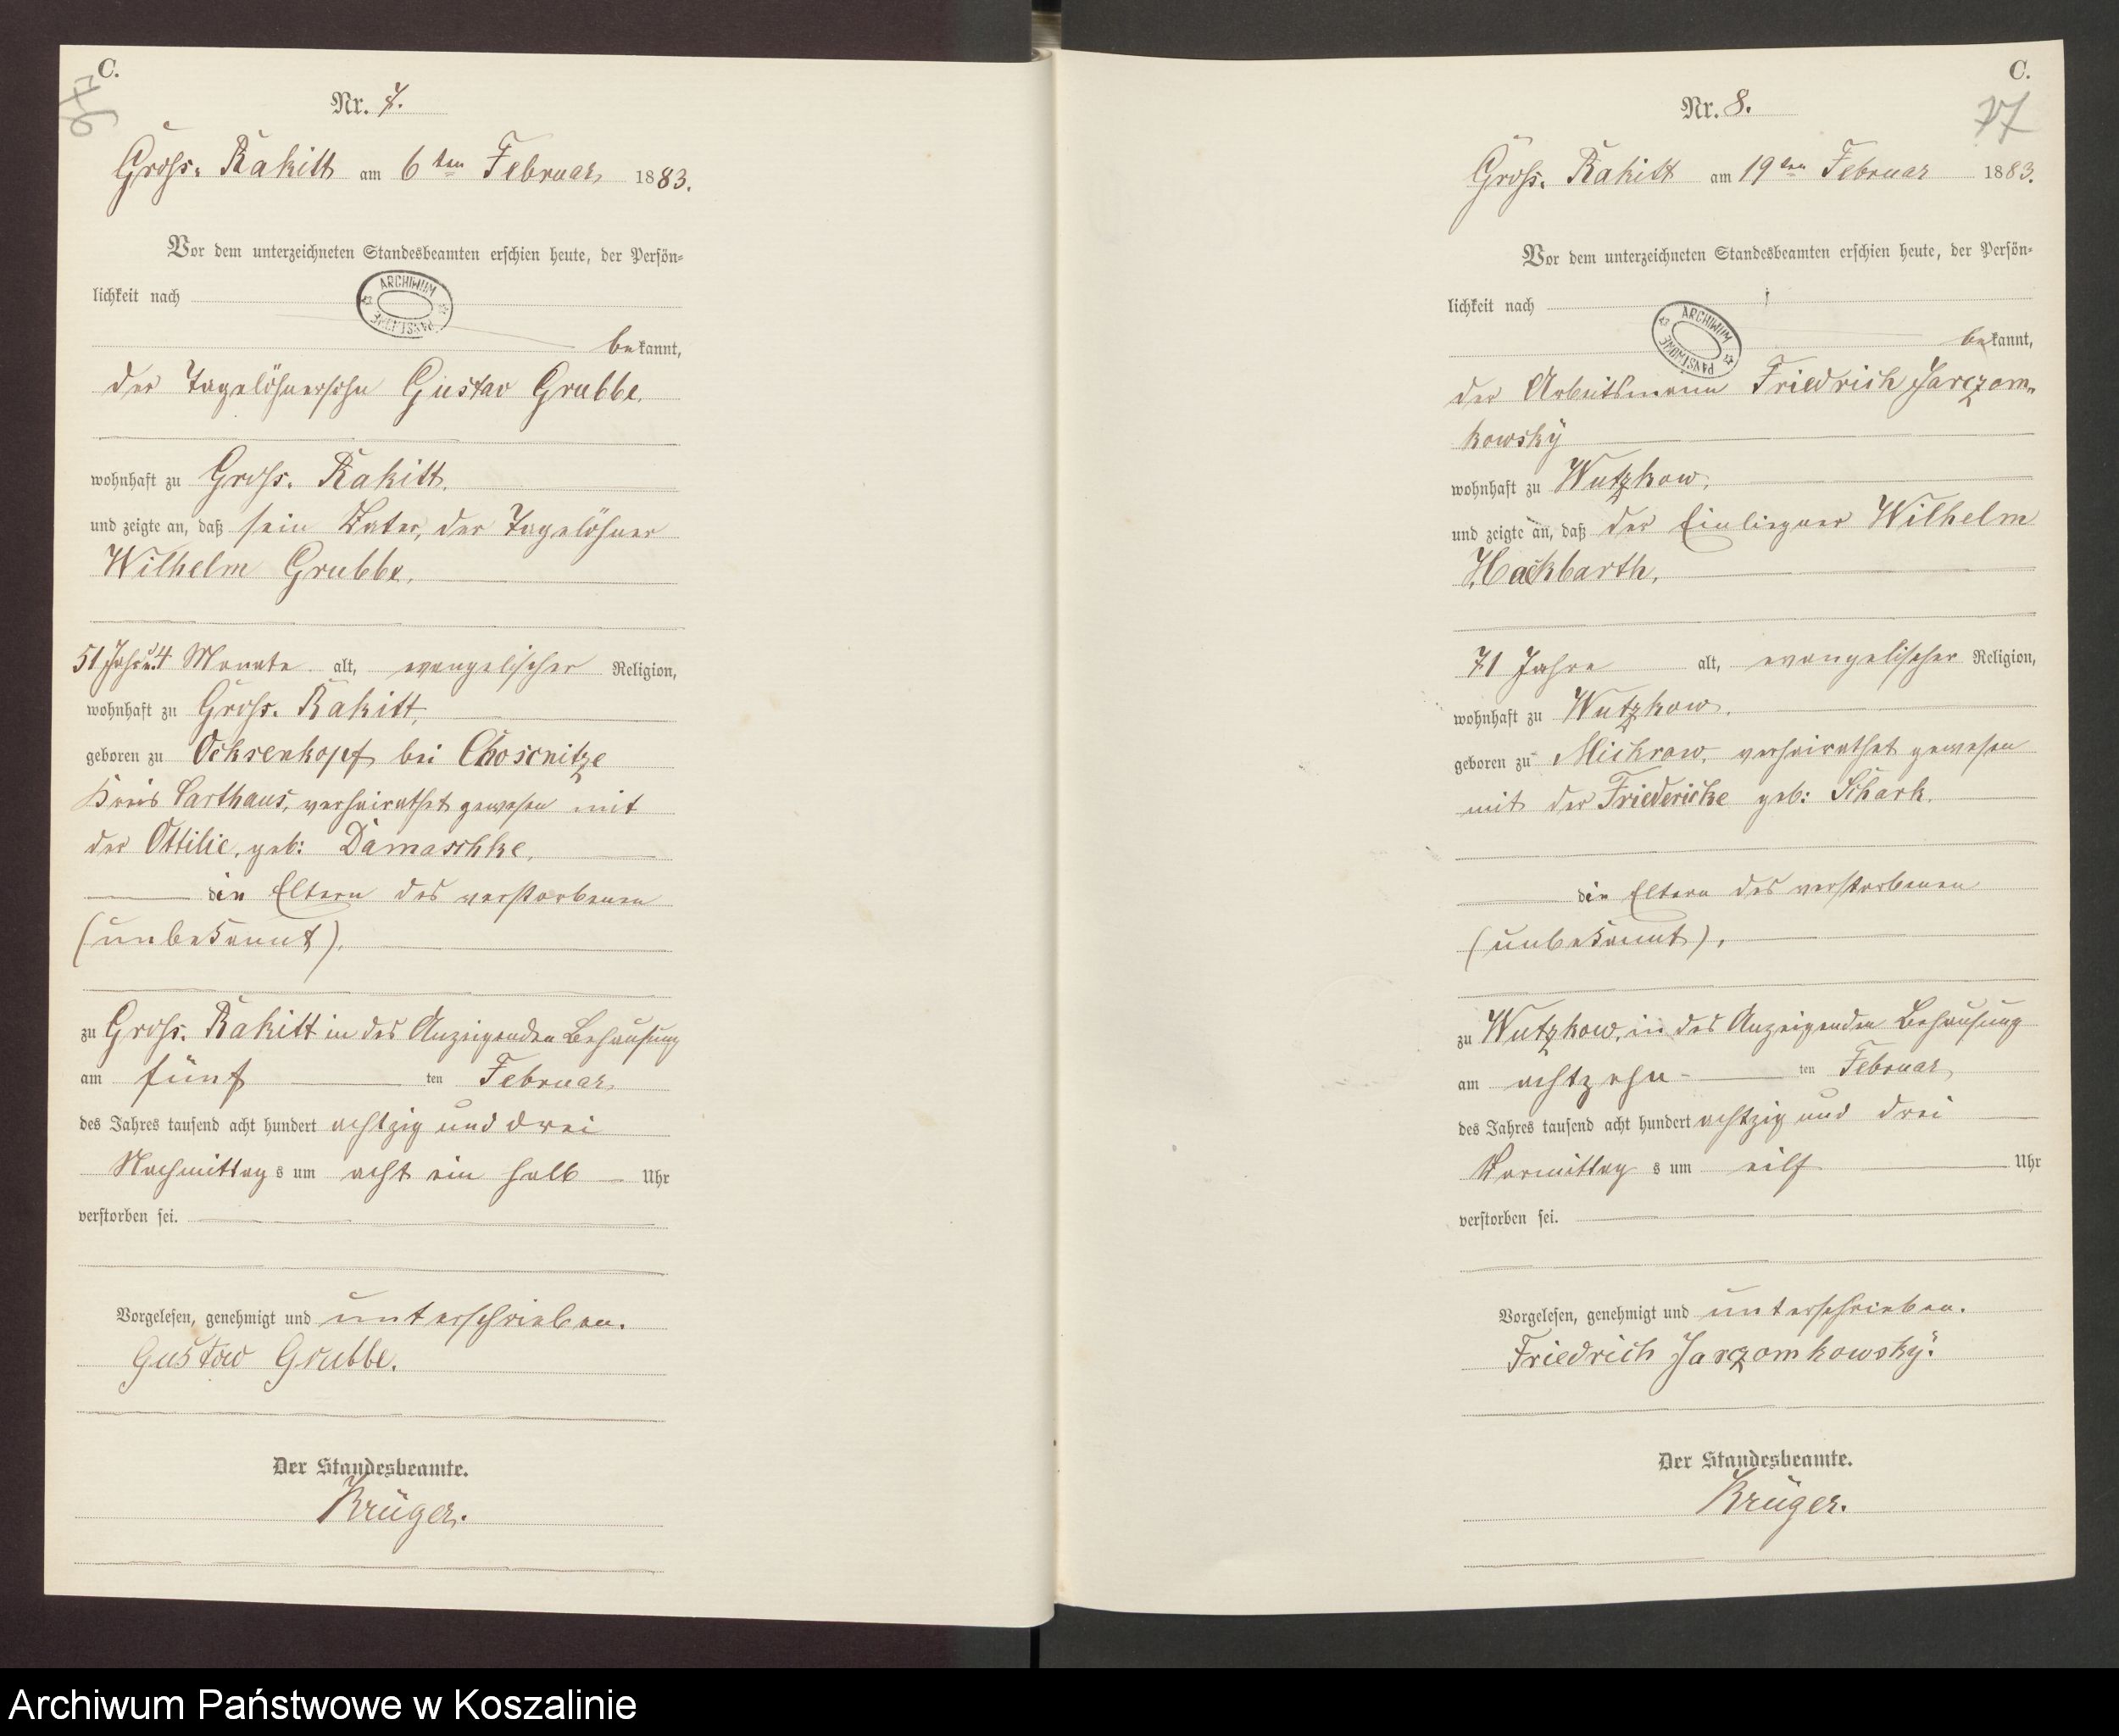 C.
Nr. 7.
Gross. Rakitt am 6ten Februar 1883.
Vor dem unterzeichneten Standesbeamten erschien heute, der Persön=
lichkeit nach
ARCHIWUM PAŃSTWOWE
bekannt,
der Tagelöhnersohn Gustav Grubbe,
wohnhaft zu Gross. Rakitt,
und zeigte an, daß sein Vater, der Tagelöhner
Wilhelm Grubbe,
51 Jahr u. 4 Monate alt, evangelischer Religion,
wohnhaft zu Gross. Rakitt,
geboren zu Ochsenkopf bei Chosnitze
Kreis Carthaus, verheirathet gewesen mit
der Ottilie, geb: Damaschke,
die Eltern des verstorbenen
(unbekannt),
zu Gross. Rakitt in des Anzeigenden Behausung
am fünf ten Februar
des Jahres tausend acht hundert achtzig und drei
Nachmittags um acht ein halb Uhr
verstorben sei.
Vorgelesen, genehmigt und unterschrieben.
Gustaw Grubbe.
Der Standesbeamte.
Krüger.
C.
77
Nr. 8.
Gross. Rakitt am 19ten Februar 1883.
Vor dem unterzeichneten Standesbeamten erschien heute, der Persön=
lichkeit nach
ARCHIWUM PAŃSTWOWE
bekannt,
der Arbeitsmann Friedrich Jarczom=
kowsky
wohnhaft zu Wutzkow,
und zeigte an, daß der Einlieger Wilhelm
Hackbarth,
71 Jahre alt, evangelischer Religion,
wohnhaft zu Wutzkow,
geboren zu Mickrow, verheirathet gewesen
mit der Friedericke geb: Schark,
die Eltern des verstorbenen
(unbekannt),
zu Wutzkow, in des Anzeigenden Behausung
am achtzehn ten Februar
des Jahres tausend acht hundert achtzig und drei
Vormittags um eilf Uhr
verstorben sei.
Vorgelesen, genehmigt und unterschrieben.
Friedrich Jarczomkowsky.
Der Standesbeamte.
Krüger.
Archiwum Państwowe w Koszalinie